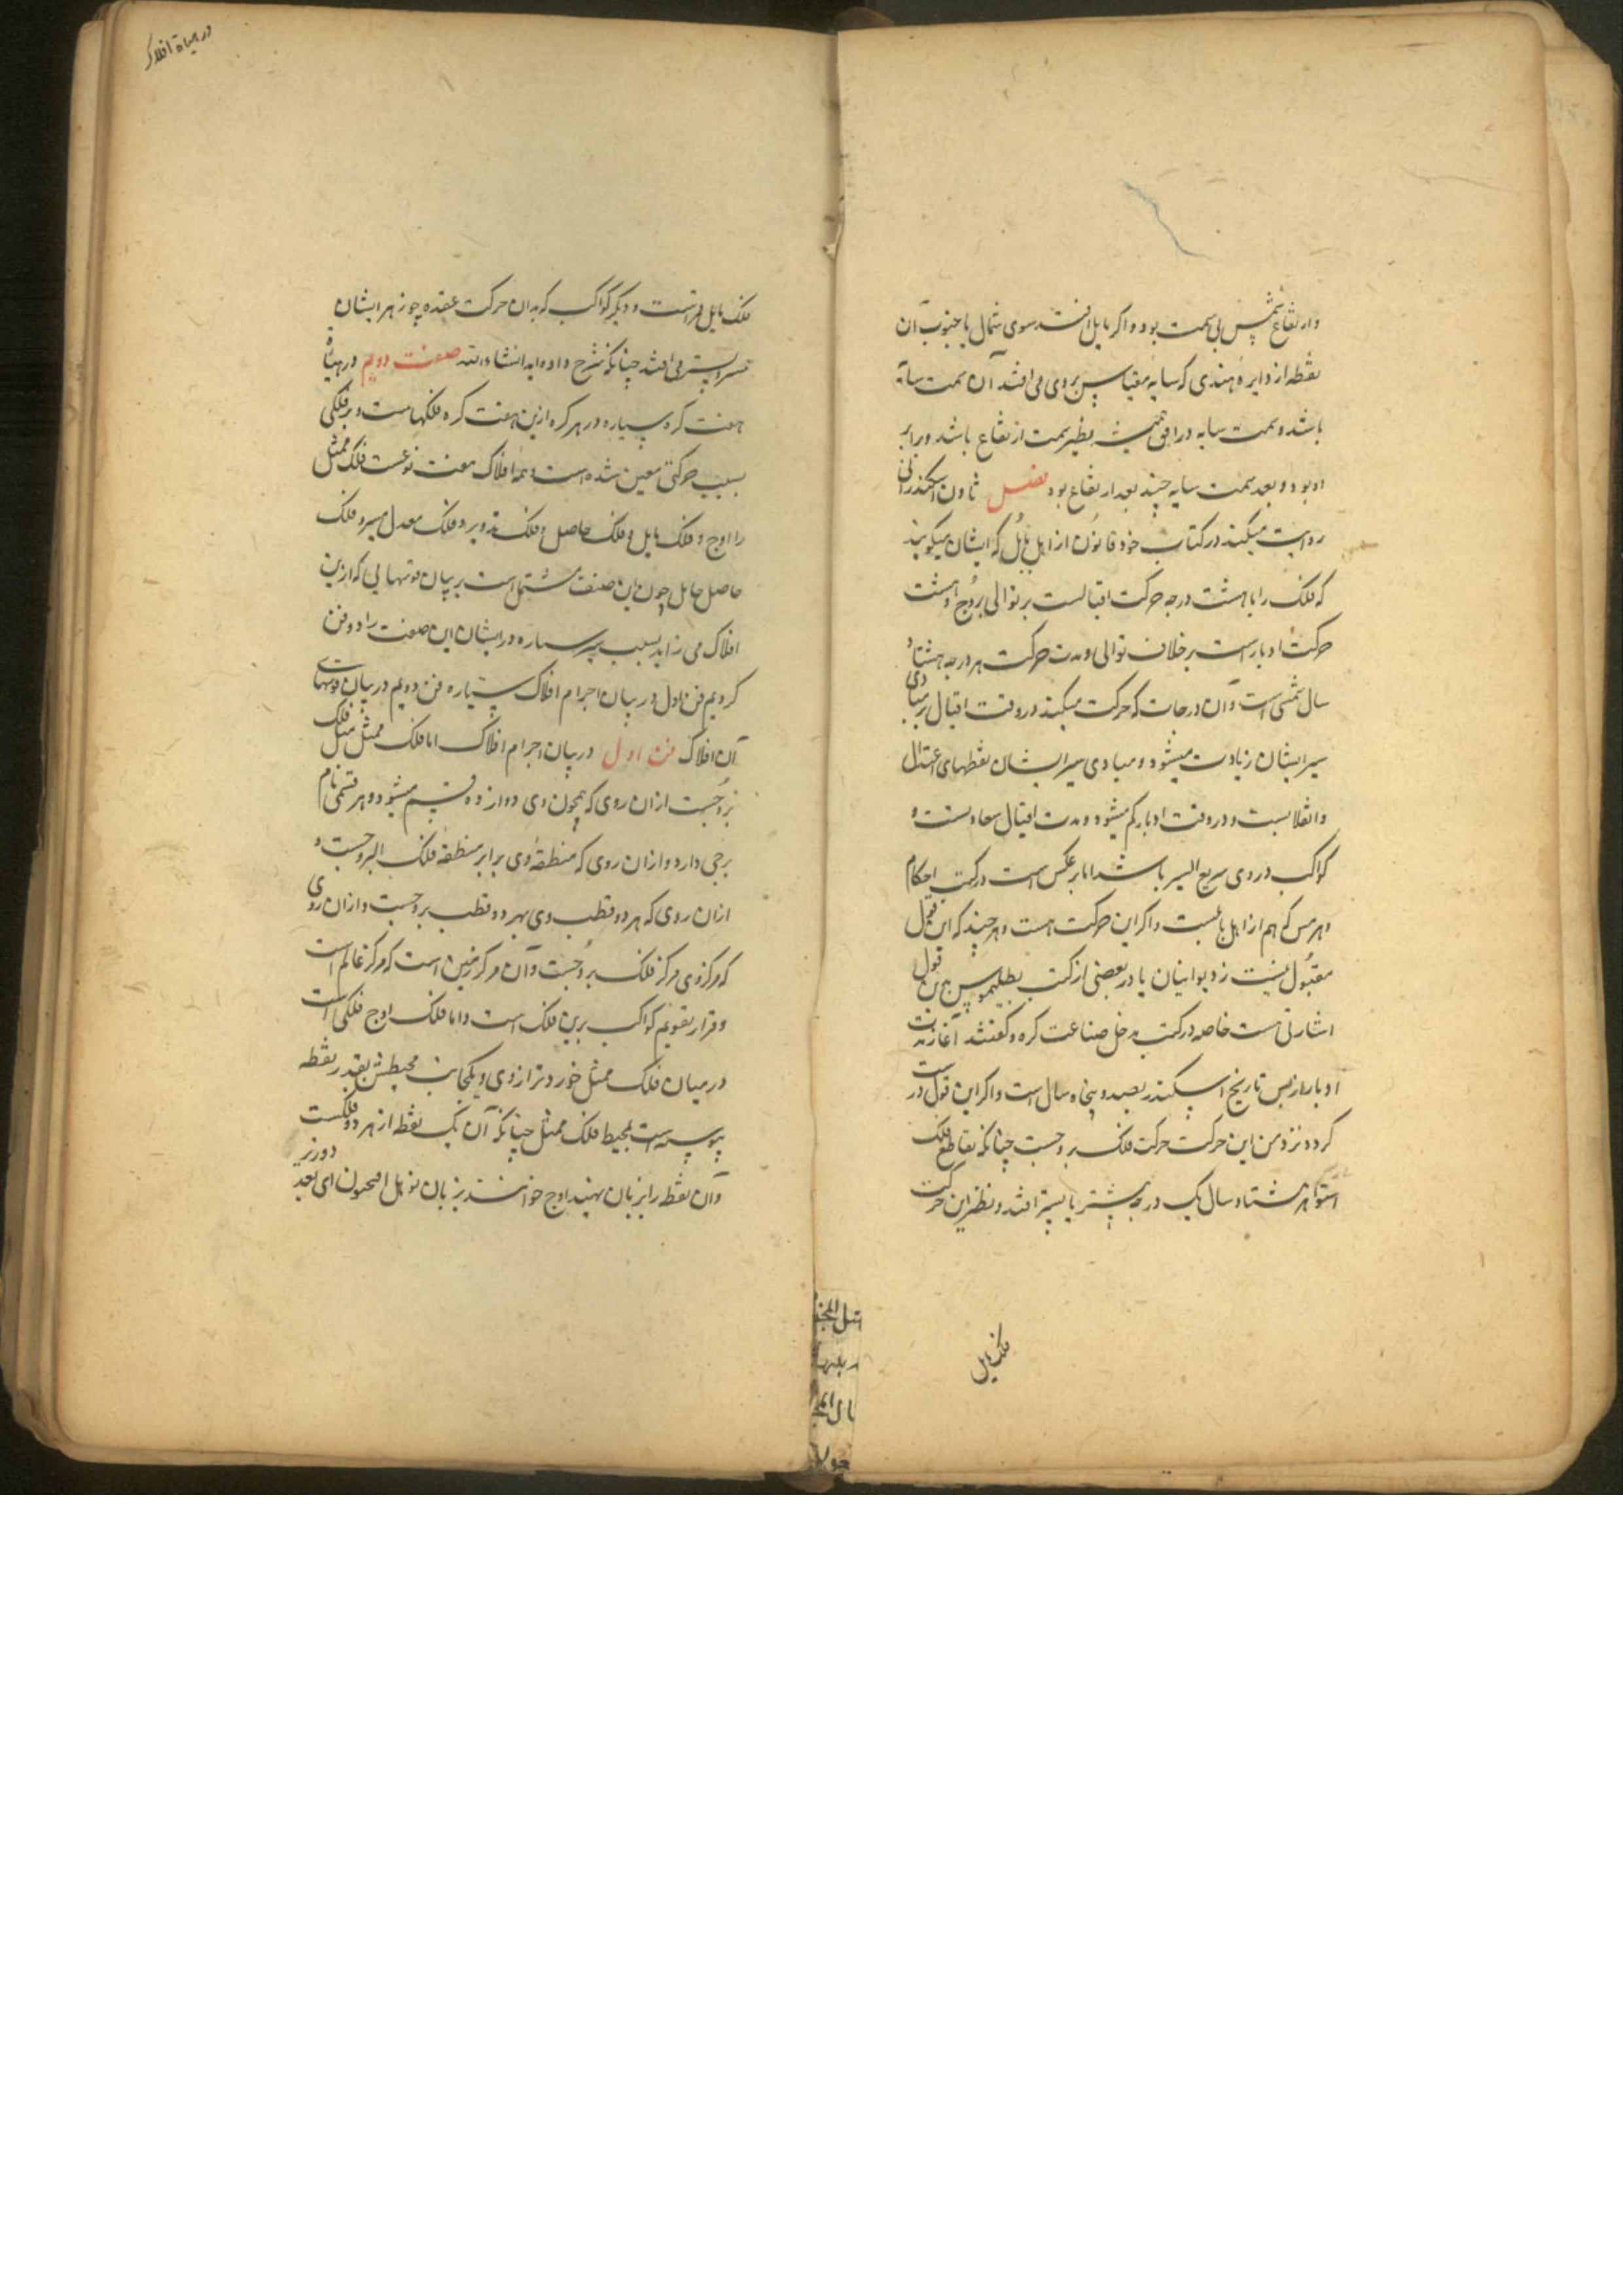 وارتفاع شمس بی سمت بود واکر مایل افتد سوی شمال یا جنوب آن
نقطه از دایره هندی که سایه مقیاس بر وی می افتد آن سمت سایه
باشد وسمت سایه در افق همیشه نظیر سمت ارتفاع باشد وبرابر
او بود وبعد سمت سایه چند بعد ارتفاع بود فصل ثاون اسکندرانی
روایت میکند در کتاب خود قانون از اهل بابل که ایشان میکویند
که فلک را با هشت درجه حرکت اقبالست بر توالی بروج وهشت
حرکت ادبارست بر خلاف توالی ومدت حرکت هر درجه هشتاد
سال شمسی است وآن درجات که حرکت میکند در وقت اقبال بر مبادی
سیر ایشان زیادت میشود ومبادی سیر ایشان نقطهای اعتدال
وانقلابست ودر وقت ادبار کم میشود ومدت اقبال سعادتست و
کواکب در وی سریع السیر باشد اما بر عکس است در کتب احکام
وهرمس که هم از اهل بابلست واکر این حرکت هست وهر چند که این
مقبول نیست نزد یونانیان یا در بعضی از کتب بطلیموس بدین قول
اشارتی هست خاصه در کتب مدخل صناعت کره وکفتند آغاز
ادبار از پس تاریخ اسکندر بصد وپنجاه سال است واکر این قول درست
کردد نزد من این حرکت حرکت فلک بروجست چنانکه تقاطع فلک
استوا هر هشتاد سال یک درجه پیشتر یا پستر افتد ونظیر این حرکت
فلک مایل
در هیاة افلاک
فلک مایل قمراست ودیکر کواکب که بدان حرکت عقده جوزهر ایشان
پستر می افتد چنانکه شرح داده اید انشاء الله صنعت دویم در هیاة
هفت کره سیاره در هر کره ازین هفت کره فلکهاست وهر فلکی
بسبب حرکتی معین شده است وهمه افلاک هفت نوعست فلک ممثل
را اوج وفلک مایل وفلک حامل وفلک تدویر وفلک معدل مسیر وفلک
حامل حامل چون این صنعت مشتمل است بر بیان قوتهایی که ازین
افلاک می زاید بسبب سیر ستاره در ایشان این صنعت را دو فن
کردیم فن اول در بیان اجرام افلاک سیاره فن دویم در بیان قوتهای
آن افلاک فن اول در بیان اجرام افلاک اما فلک ممثل مثل فلک
بروجست ازان روی که همچون وی دوازده قسم میشود وهر قسمی نام
برجی دارد وازان روی که منطقهٔ وی برابر منطقهٔ فلک البروجست و
ازان روی که هر دو قطب وی بهر دو قطب بروجست وازان روی
که مرکز وی مرکز فلک بروجست وآن مرکز زمین است که مرکز عالم است
وقرار تقویم کواکب برین فلک است واما فلک اوج فلکی است
در میان فلک ممثل خوردتر از وی ویکجانب محیطش بقدر نقطه
پیوسته است بمحیط فلک ممثل چنانکه آن یک نقطه از هر دو فلکست
وآن نقطه را بزبان هند اوج خوانند بزبان یونانی افجیون ای بعد دورتر